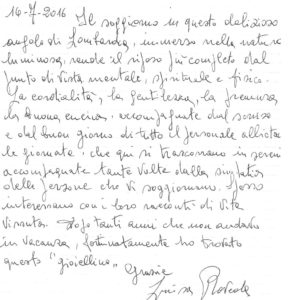 14-7-2016 Il soggiorno in questo delizioso
angolo di Lombardia, immerso nella natura
luminosa, rende il riposo più completo dal
punto di vista mentale, spirituale e fisico.
La cordialità, la gentilezza, la premura
la buona cucina, accompagnate dal sorriso
e dal buon giorno di tutto il personale allieta
le giornate che qui si trascorrono in sereni
accompagnate tante volte dalla simpatia
delle persone che vi soggiornano. Posso
interessano con i loro racconti di vita
vissuta. Dopo tanti anni che non andavo
in vacanza, fortunatamente ho trovato
questo "gioiellino"
Grazie
Luisa